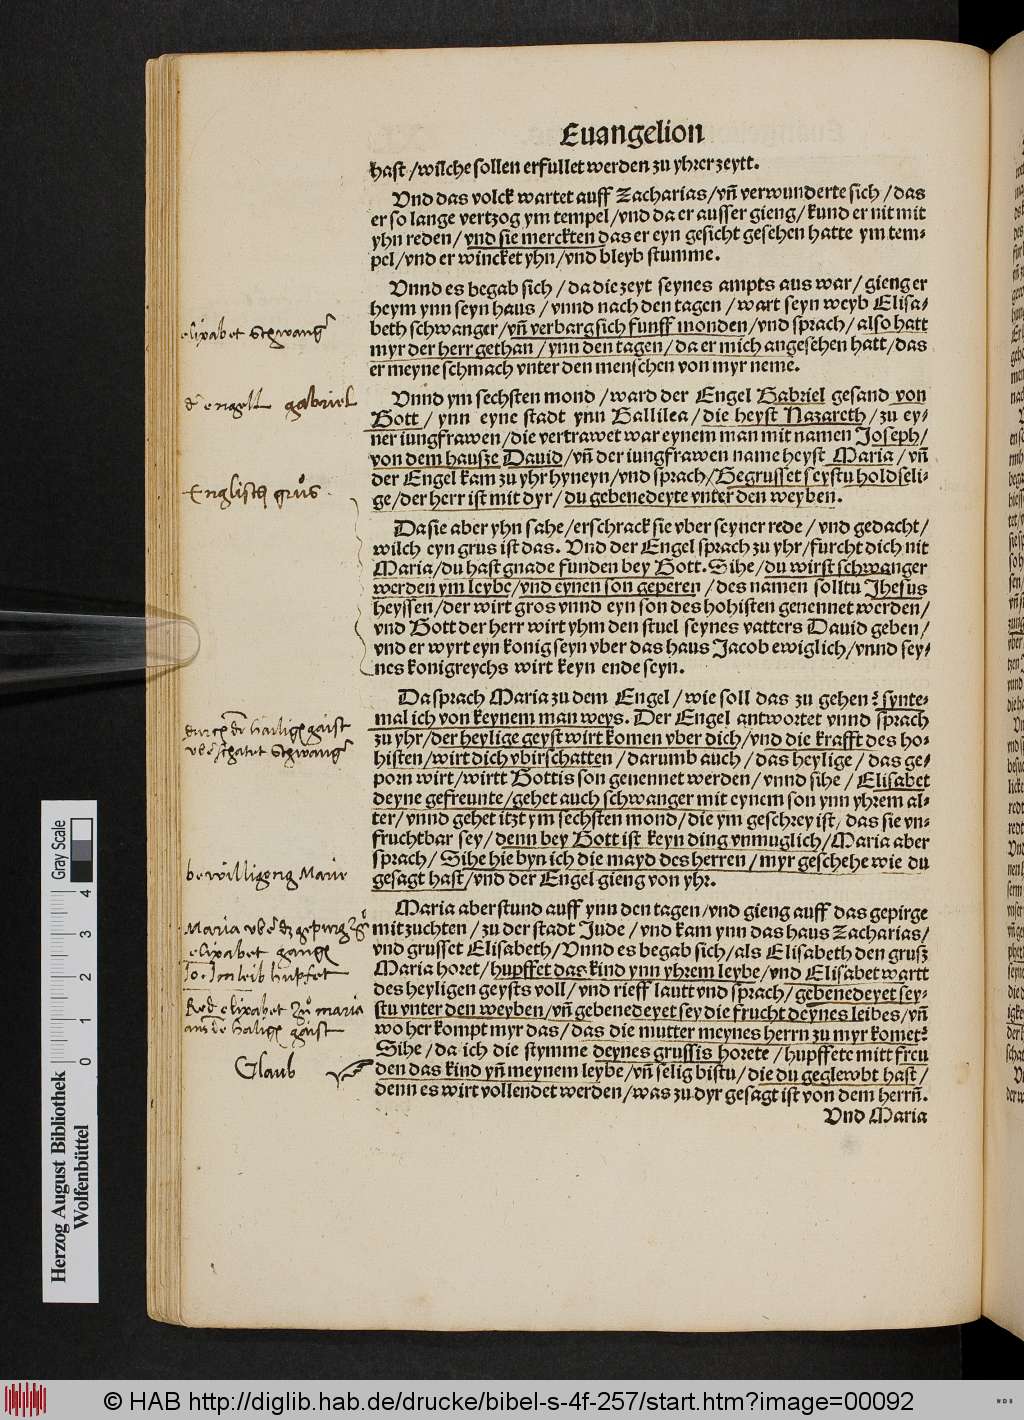 Euangelion
hast / wilche sollen erfullet werden zu yhrer zeytt.
Vnd das volck wartet auff Zacharias / vñ verwunderte sich / das
er so lange vertzog ym tempel / vnd da er ausser gieng / kund er nit mit
yhn reden / vnd sie merckten das er eyn gesicht gesehen hatte ym tem-
pel / vnd er wincket yhn / vnd bleyb stumme.
Vnnd es begab sich / da die zeyt seynes ampts aus war / gieng er
heym ynn seyn haus / vnnd nach den tagen / wart seyn weyb Elisa-
beth schwanger / vñ verbarg sich funff monden / vnd sprach / also hatt
myr der herr gethan / ynn den tagen / da er mich angesehen hatt / das
er meyne schmach vnter den menschen von myr neme.
elixabet Schwang
Vnnd ym sechsten mond / ward der Engel Gabriel gesand von
Gott / ynn eyne stadt ynn Gallilea / die heyst Nazareth / zu ey-
ner iungfrawen / die vertrawet war eynem man mit namen Joseph /
von dem hausze Dauid / vñ der iungfrawen name heyst Maria / vñ
der Engel kam zu yhr hyneyn / vnd sprach / Gegrusset seystu holdseli-
ge / der herr ist mit dyr / du gebenedeyte vnter den weyben.
engell gabriel
Englisch grůs.
Da sie aber yhn sahe / erschrack sie vber seyner rede / vnd gedacht /
wilch eyn grus ist das. Vnd der Engel sprach zu yhr / furcht dich nit
Maria / du hast gnade funden bey Gott. Sihe / du wirst schwanger
werden ym leybe / vnd eynen son geperen / des namen solltu Jhesus
heyssen / der wirt gros vnnd eyn son des hohisten genennet werden /
vnd Gott der herr wirt yhm den stuel seynes vatters Dauid geben /
vnd er wyrt eyn konig seyn vber das haus Jacob ewiglich / vnnd sey-
nes konigreychs wirt keyn ende seyn.
Da sprach Maria zu dem Engel / wie soll das zu gehen? synte-
mal ich von keynem man weys. Der Engel antwortet vnnd sprach
zu yhr / der heylige geyst wirt komen vber dich / vnd die krafft des ho-
histen / wirt dich vbirschatten / darumb auch / das heylige / das ge-
porn wirt / wirtt Gottis son genennet werden / vnnd sihe / Elisabet
deyne gefreunte / gehet auch schwanger mit eynem son ynn yhrem al-
ter / vnnd gehet itzt ym sechsten mond / die ym geschrey ist, das sie vn-
fruchtbar sey / denn bey Gott ist keyn ding vnmuglich / Maria aber
sprach / Sihe hie byn ich die mayd des herren / myr geschehe wie du
gesagt hast / vnd der Engel gieng von yhr.
durch de hailig gaist
vberschatet Schwang
bewilligong Marie
Maria aber stund auff ynn den tagen / vnd gieng auff das gepirge
mit zuchten / zu der stadt Jude / vnd kam ynn das haus Zacharias /
vnd grusset Elisabeth / Vnnd es begab sich / als Elisabeth den grusz
Maria horet / hupffet das kind ynn yhrem leybe / vnd Elisabet wartt
des heyligen geysts voll / vnd rieff lautt vnd sprach / gebenedeyet sey-
stu vnter den weyben / vñ gebenedeyet sey die frucht deynes leibes / vñ
wo her kompt myr das / das die mutter meynes herrn zu myr komet?
Sihe / da ich die stymme deynes grussis horete / hupffete mitt freu
den das kind yñ meynem leybe / vñ selig bistu / die du geglewbt hast /
denn es wirt vollendet werden / was zu dyr gesagt ist von dem herrñ.
Vnd Maria
Maria vber dz gepirg
elixabet gangen
Jo. Im leib hupfet
Red elixabet zů maria
haligen gaist
Glaub
Gray Scale
0 1 2 3 4
Herzog August Bibliothek
Wolfenbüttel
© HAB http://diglib.hab.de/drucke/bibel-s-4f-257/start.htm?image=00092